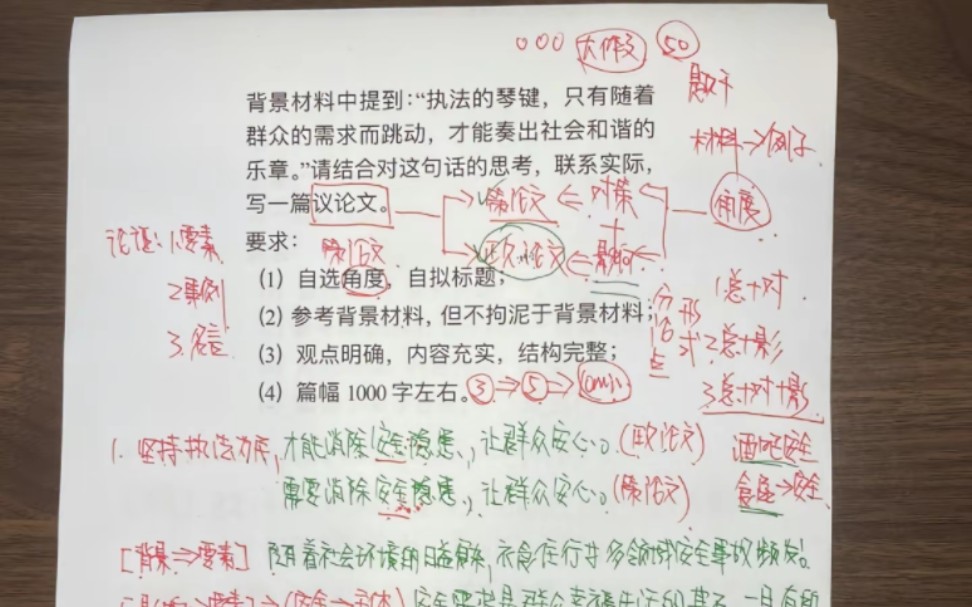 大作文 50
题干
背景材料中提到：“执法的琴键，只有随着
群众的需求而跳动，才能奏出社会和谐的
乐章。”请结合对这句话的思考，联系实际，
写一篇议论文。
材料→例子
角度
策论文 ← 对策
政论文 ← 影响
要求：
策论文
（1）自选角度，自拟标题；
（2）参考背景材料，但不拘泥于背景材料；
（3）观点明确，内容充实，结构完整；
（4）篇幅 1000 字左右。 ③⇒⑤⇒
论证：1.要素
2.案例
3.名言
分论点
形式
1.总+对
2.总+影
3.总+对+影
1. 坚持执法为民，才能消除安全隐患，让群众安心。（政论文） 酒吧安全
需要消除安全隐患，让群众安心。（策论文） 食屋→安全
[背景⇒要素] 随着社会环境的日益复杂，衣食住行等多领域安全事故频发。